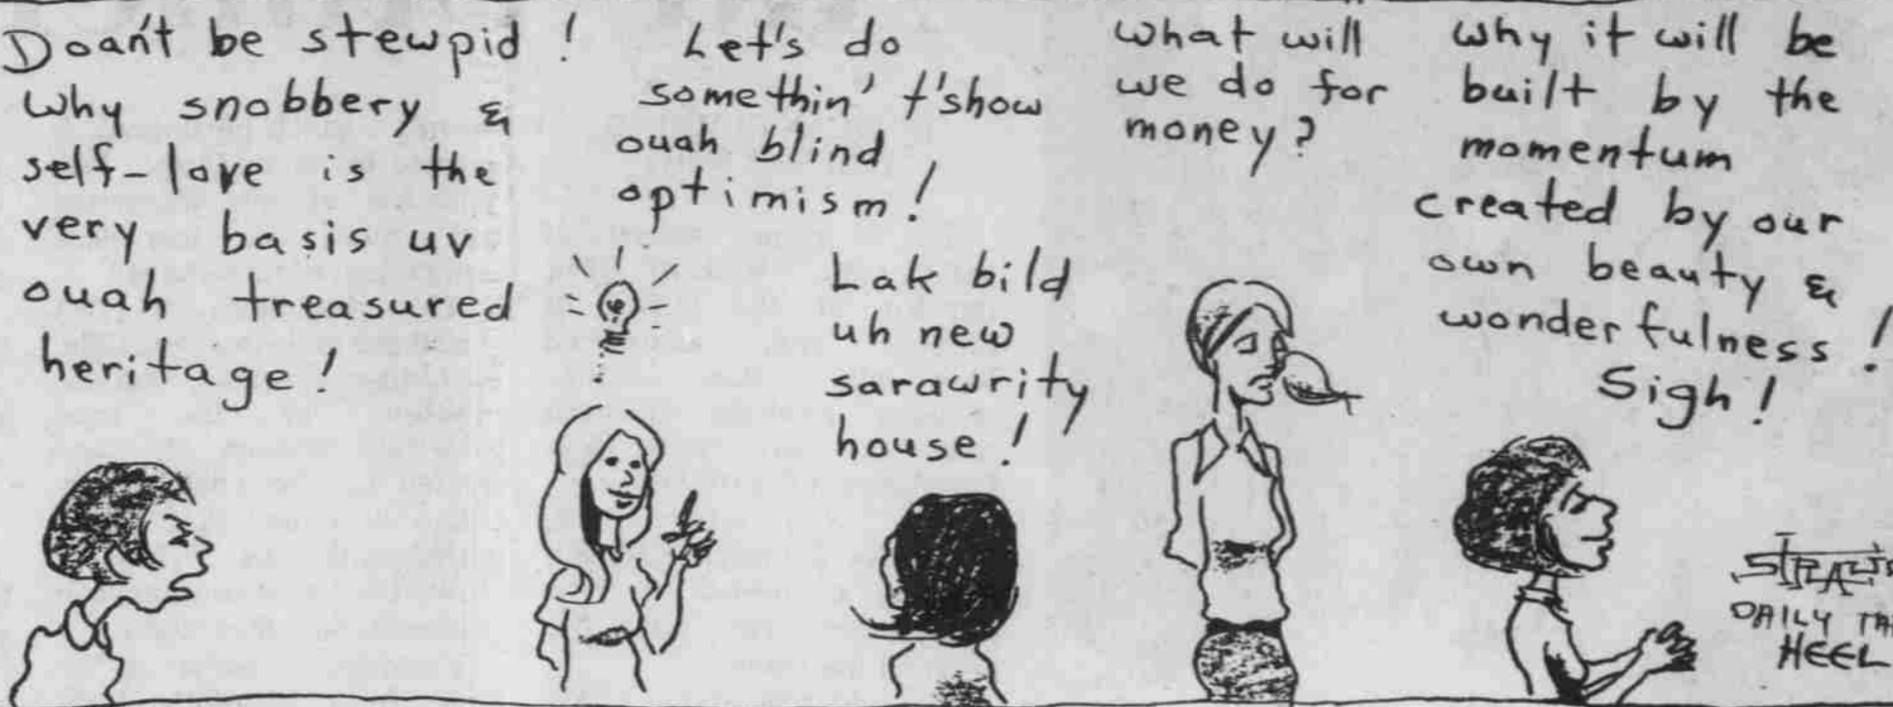 Doan't be stewpid!
Why snobbery &
self-love is the
very basis uv
ouah treasured
heritage!
Let's do
somethin' t'show
ouah blind
optimism!
Lak bild
uh new
sarawrity
house!
What will
we do for
money?
Why it will be
built by the
momentum
created by our
own beauty &
wonderfulness!
Sigh!
DAILY TA
HEEL